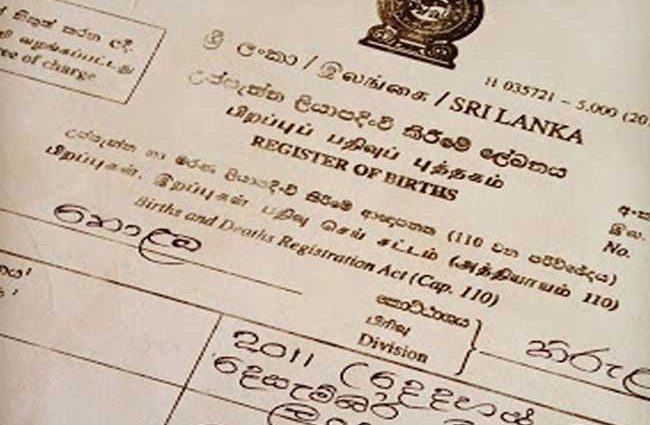 නිකුත් කරන ලදී
வழங்கப்பட்டது
free of charge
ශ්‍රී ලංකා / இலங்கை / SRI LANKA
11 035721 – 5,000 (20
උප්පැන්න ලියාපදිංචි කිරීමේ ලේඛනය
பிறப்புப் பதிவுப் புத்தகம்
REGISTER OF BIRTHS
උප්පැන්න හා මරණ ලියාපදිංචි කිරීමේ ආඥාපනත (110 වන පරිච්ඡේදය)
பிறப்புகள், இறப்புகள் பதிவு செய் சட்டம் (அத்தியாயம் 110)
Births and Deaths Registration Act (Cap. 110)
අංක
இல.
No.
කොළඹ
කොට්ඨාශය
பிரிவு
Division
තිරුල
2011 (දෙදහස්
දෙසැම්බර්